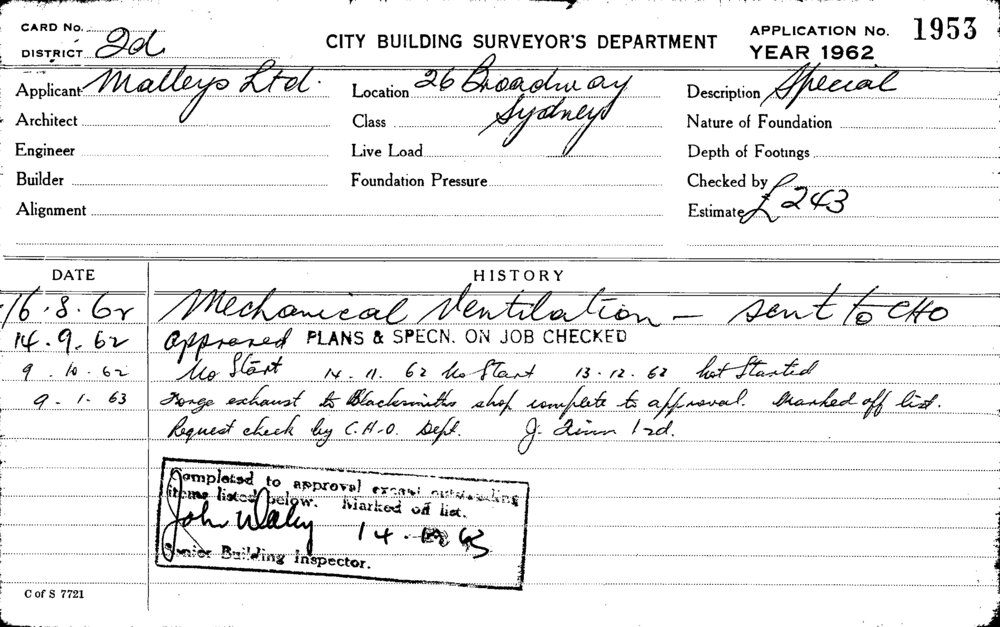 CARD No. CITY BUILDING SURVEYOR'S DEPARTMENT APPLICATION No. 1953
DISTRICT 2d YEAR 1962
Applicant Malleys Ltd. Location 26 Broadway Description Special
Architect Class Sydney Nature of Foundation
Engineer Live Load Depth of Footings
Builder Foundation Pressure Checked by
Alignment Estimate £243
DATE HISTORY
16.8.62 Mechanical Ventilation — sent to CHO
14.9.62 approved PLANS & SPECN. ON JOB CHECKED
9.10.62 No Start 14.11.62 No Start 13.12.62 Not Started
9.1.63 Forge exhaust to Blacksmiths shop complete to approval. Marked off list.
Request check by C.H.O. Dept. J. 1 2d.
Completed to approval except outstanding
items listed below. Marked off list.
John Daley 14. 63
Senior Building Inspector.
C of S 7721